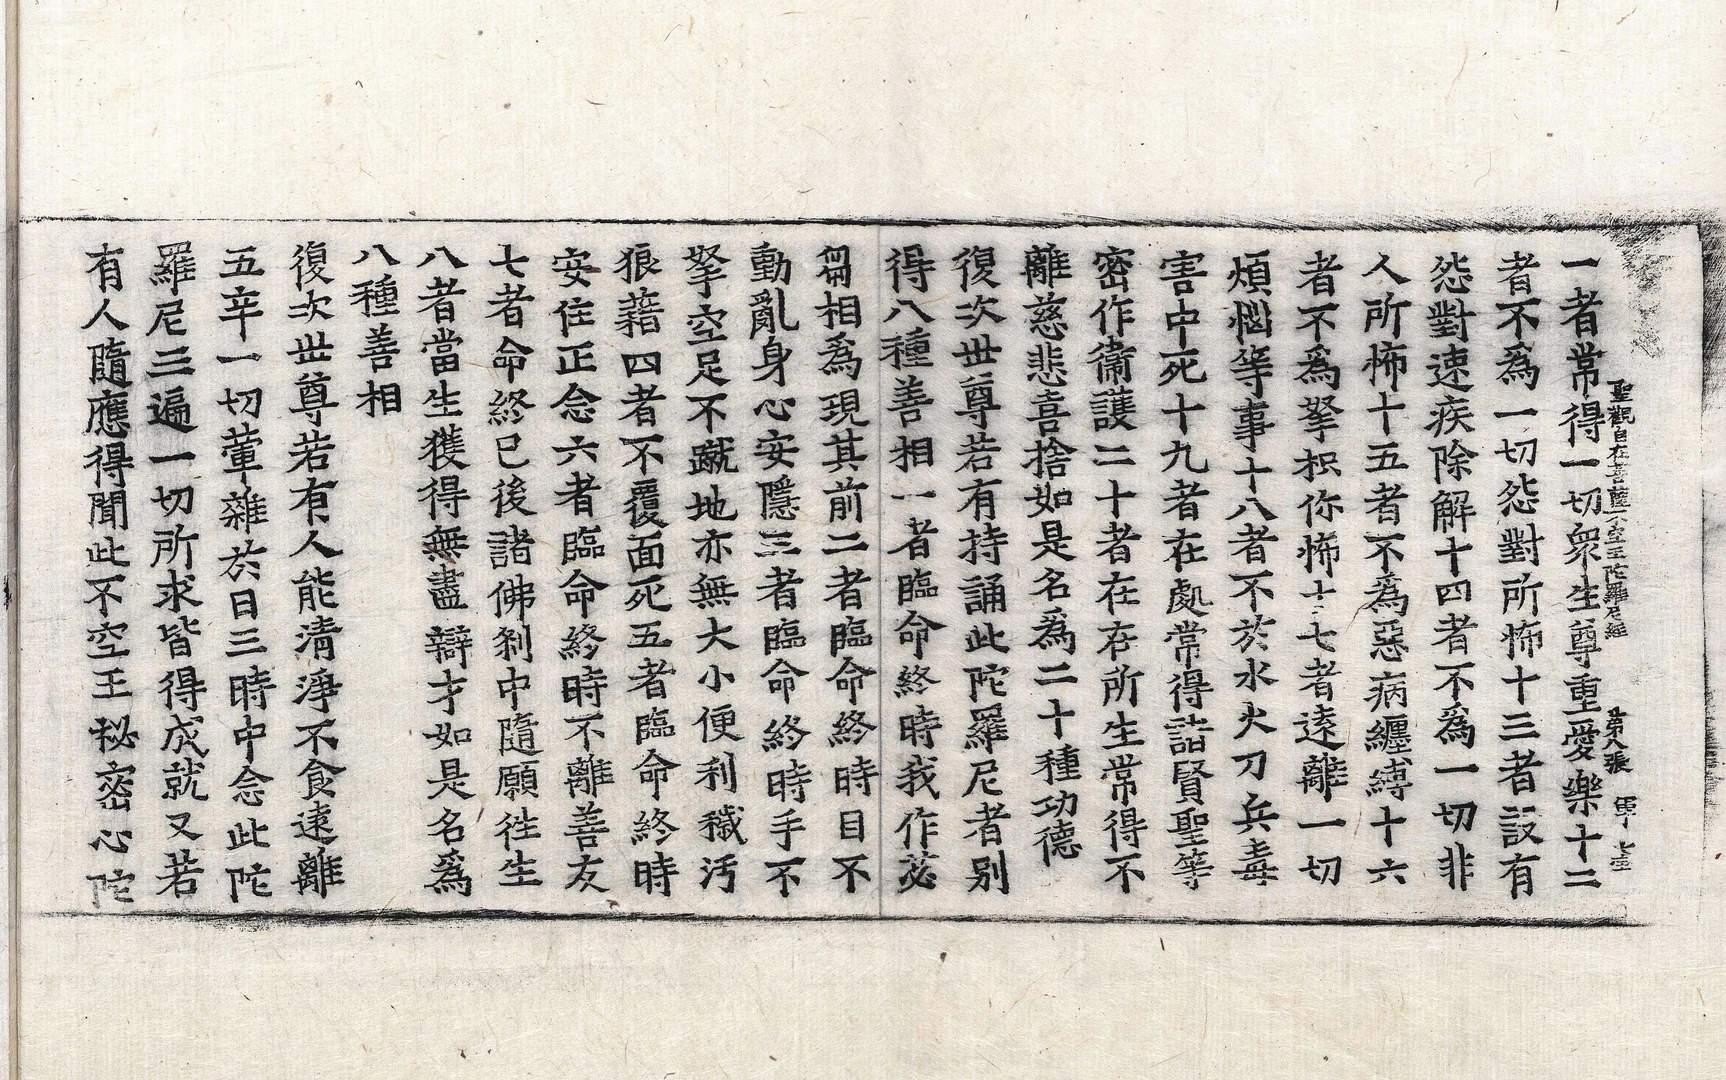 聖觀自在菩薩不空王陀羅尼經　第八張
一者常得一切衆生尊重愛樂十二
者不爲一切怨對所怖十三者設有
怨對速疾除解十四者不爲一切非
人所怖十五者不爲惡病纏縛十六
者不爲拏枳你怖十七者遠離一切
煩惱等事十八者不於水火刀兵毒
害中死十九者在處常得諸賢聖等
密作衞護二十者在在所生常得不
離慈悲喜捨如是名爲二十種功德
復次世尊若有持誦此陀羅尼者別
得八種善相一者臨命終時我作苾
芻相爲現其前二者臨命終時目不
動亂身心安隱三者臨命終時手不
拏空足不蹴地亦無大小便利穢汚
狼藉四者不覆面死五者臨命終時
安住正念六者臨命終時不離善友
七者命終已後諸佛刹中隨願徃生
八者當生獲得無盡辯才如是名爲
八種善相
復次世尊若有人能清淨不食遠離
五辛一切葷雜於日三時中念此陀
羅尼三遍一切所求皆得成就又若
有人隨應得聞此不空王秘密心陀